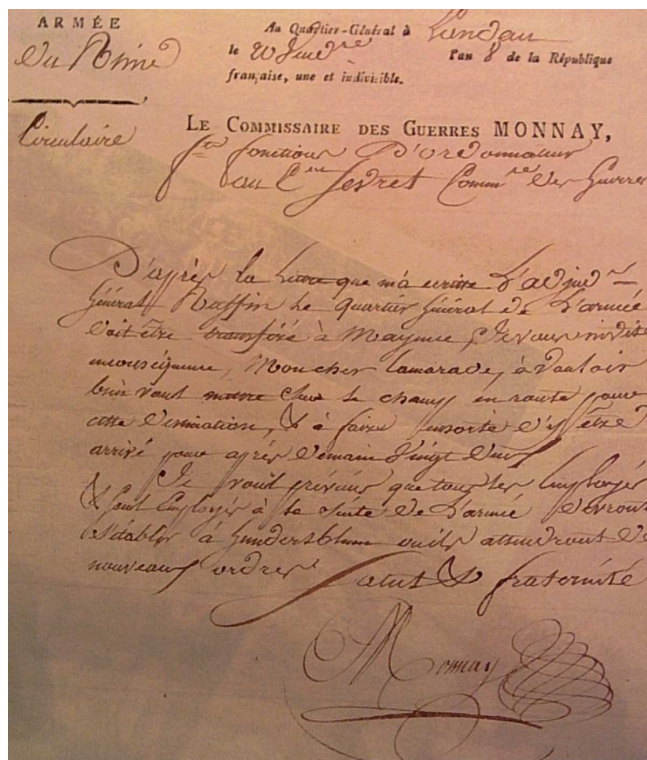 ARMÉE
du Rhin
Au Quartier-Général à Landau
le 20 Vend.re l'an 8 de la République
française, une et indivisible.
Circulaire
LE COMMISSAIRE DES GUERRES MONNAY,
f.t fonctions D'ordonnateur
au C.en Sevret Comm.re des Guerres
D'après la lettre que m'a ecritte L'adjud.t
Général Ruffin Le quartier Général de L'armée
doit être transféré à Mayence, Je vous invite
en conséquence, Mon cher Camarade, à vouloir
bien vous mettre Sur le champ en route pour
cette destination, & à faire ensorte d'y être
arrivé pour après demain Vingt deux
Je vous previens que tous les Employés
& Sous Employés à la suite de L'armée devront
s'établir à Gundersblum ou ils attendront de
nouveaux ordres
Salut & fraternité
Monnay